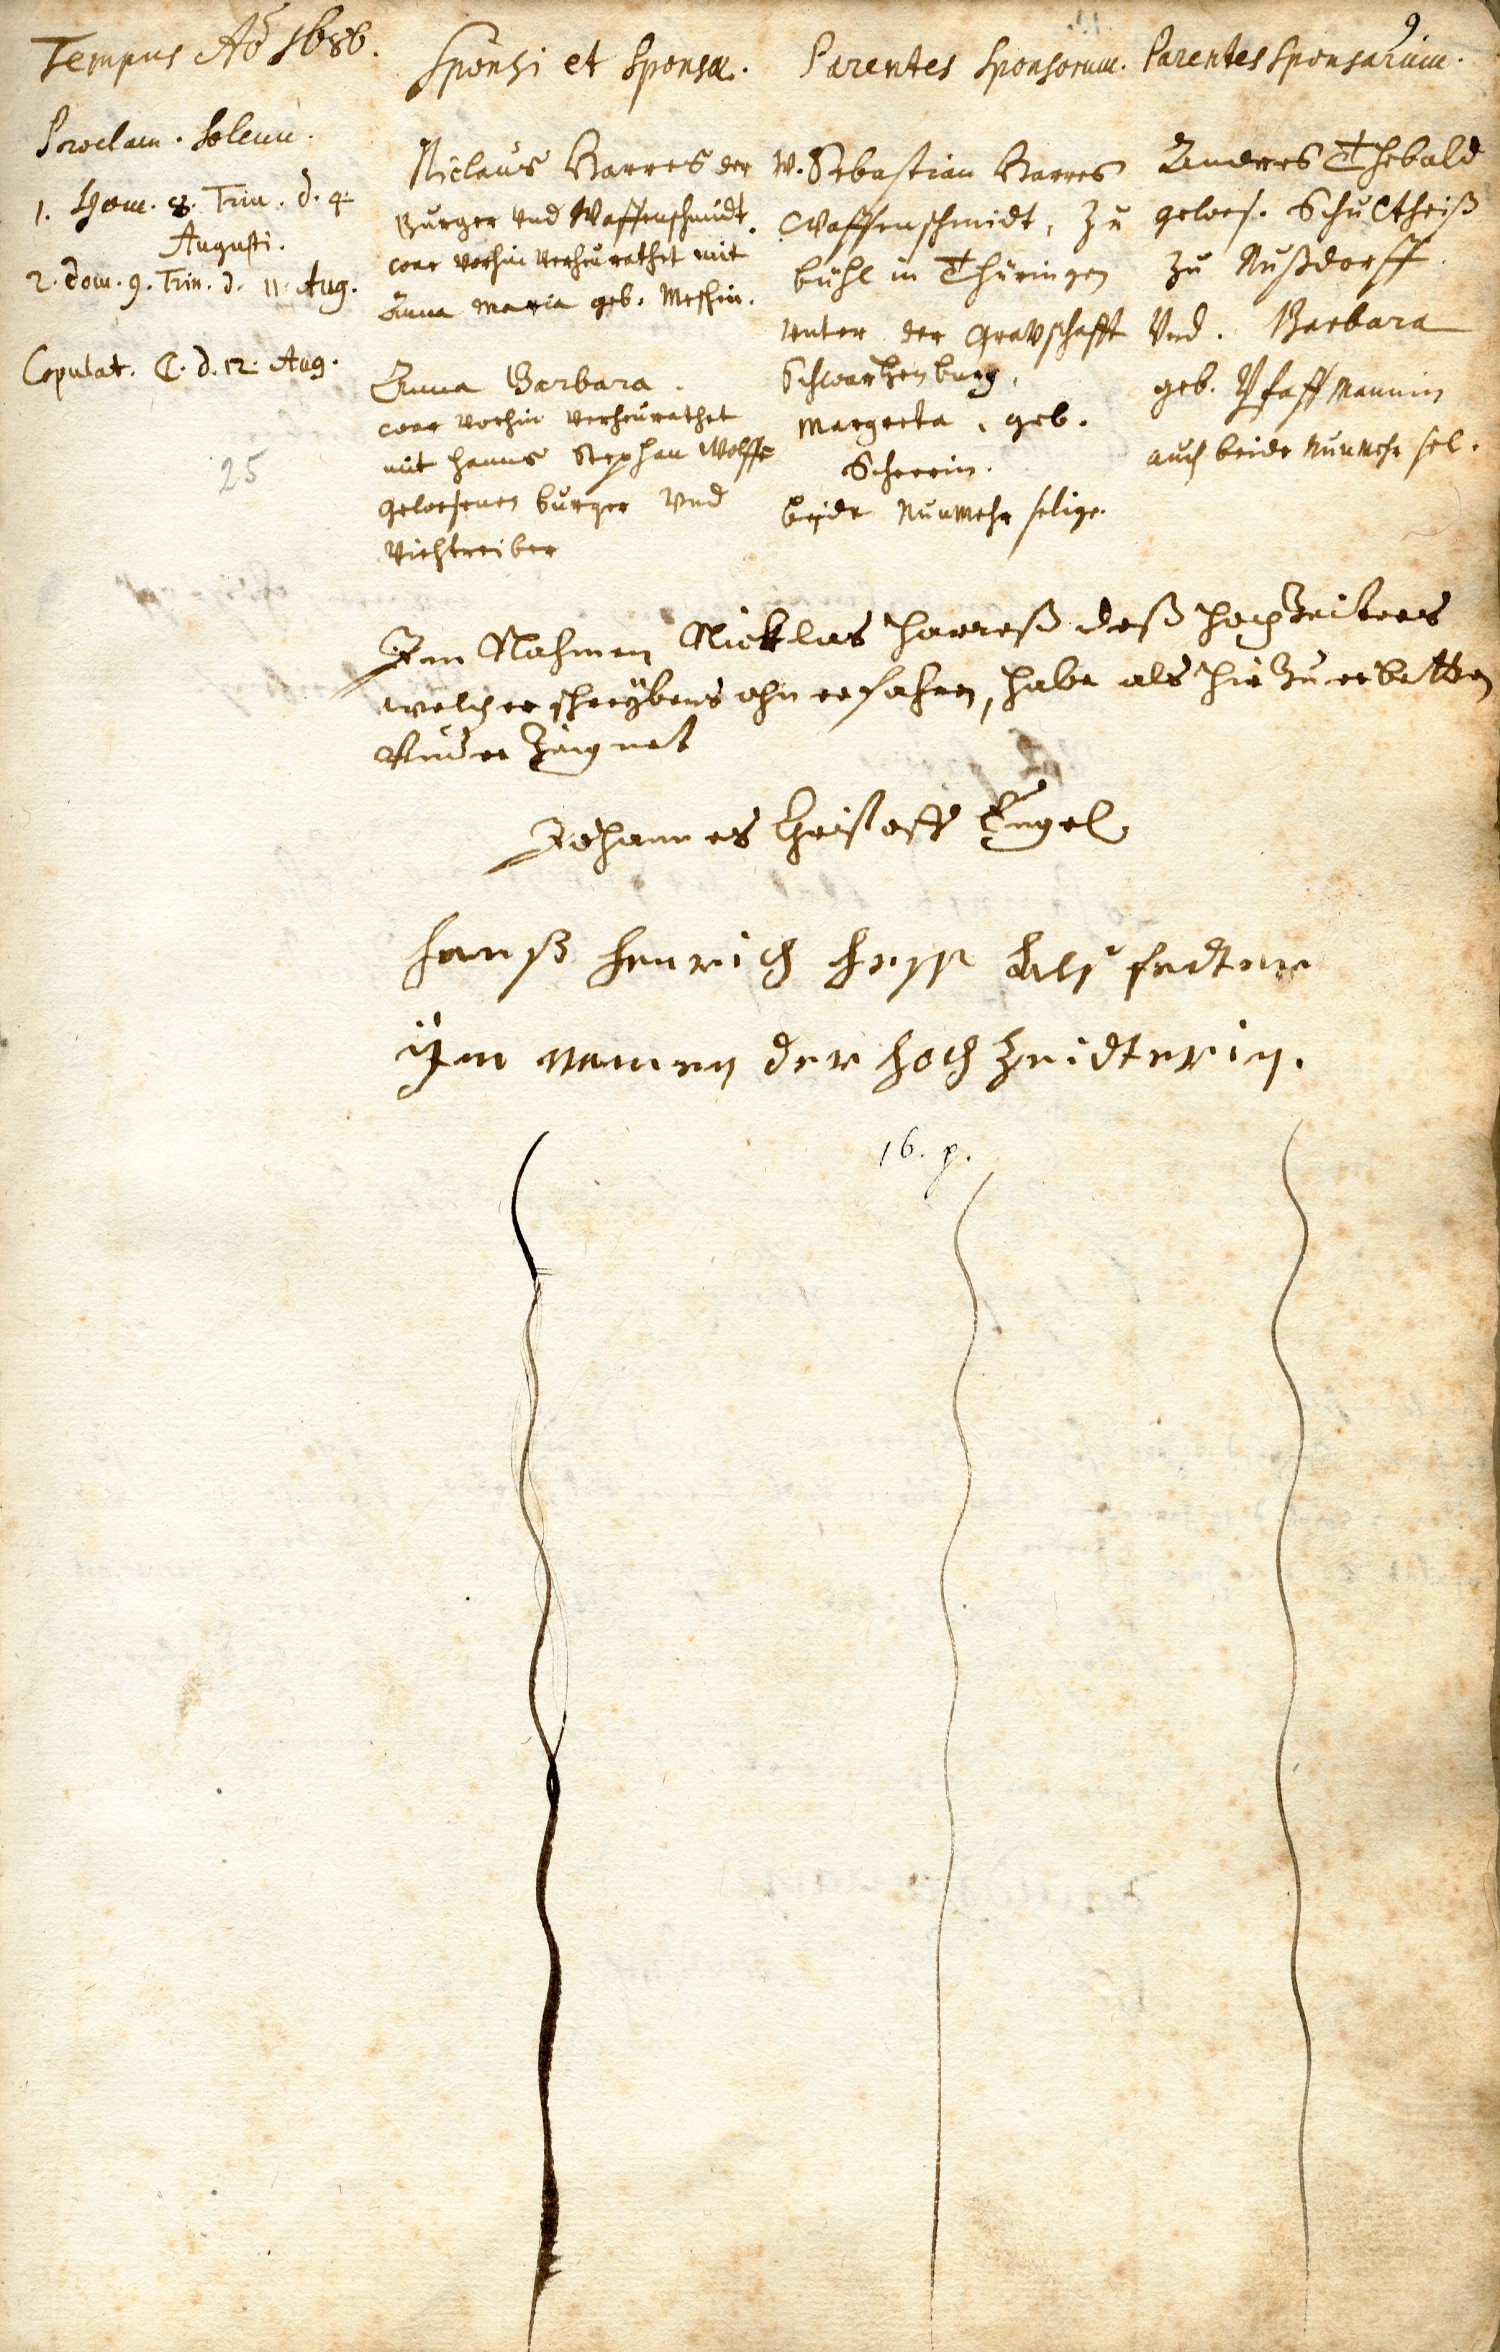 9
Tempus Aō 1686.
Sponsi et Sponsæ.
Parentes Sponsorum.
Parentes Sponsarum.
Proclam. Solenn.
1. Dom. 8. Trin. d. 4
Augusti.
2. Dom. 9. Trin. d. 11. Aug.
Copulat. C. d. 12. Aug.
25
Niclaus Harres der
Burger vnd Waffenschmidt.
war vorhin verheurathet mit
Anna Maria geb.
Anna Barbara.
war vorhin verheurathet
mit Hanns Stephan Wolffe
gewesenen burger vnd
Viehtreiber
W. Sebastian Harres
Waffenschmidt, zu
bühl in Thüringen
vnter der Gravschafft
Schwartzenburg,
Margreta, geb.
Scherrin.
beyde nunmehr selige.
Andres Thebald
gewes. Schultheiß
zu Nußdorff.
Vnd. Barbara
geb. Pfaffmannin
auch beide nunmehr sel.
Im Nahmen Nicklas Harreß deß Hochzeiters
welcher schreybens ohnerfahren, habe als hierzu erbetten
Johannes Christoff Engel
Hanß Henrich als
im namen der Hochzeidterin.
16. p.